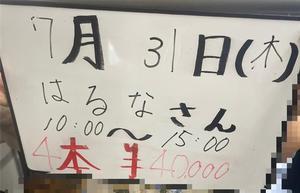 7月31日(木)
はるなさん
10:00〜15:00
4本 ¥40,000